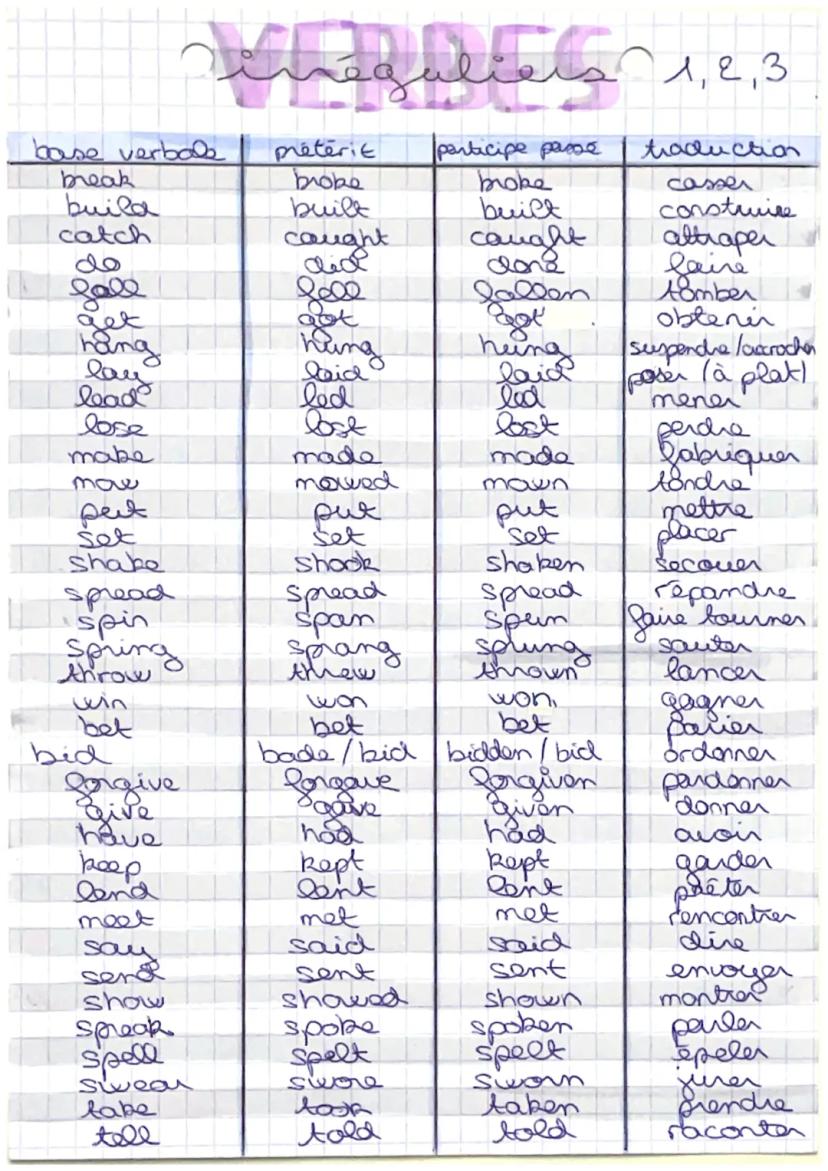 VERBES
irréguliers 1, 2, 3
base verbale prétérit participe passé traduction
break broke broke casser
build built built construire
catch caught caught attraper
do did done faire
fall fell fallen tomber
get got got obtenir
hang hung hung suspendre/accrocher
lay laid laid poser (à plat)
lead led led mener
lose lost lost perdre
make made made fabriquer
mow mowed mown tondre
put put put mettre
set set set placer
shake shook shaken secouer
spread spread spread répandre
spin span spun faire tourner
spring sprang sprung sauter
throw threw thrown lancer
win won won gagner
bet bet bet parier
bid bade/bid bidden/bid ordonner
forgive forgave forgiven pardonner
give gave given donner
have had had avoir
keep kept kept garder
lend lent lent prêter
meet met met rencontrer
say said said dire
send sent sent envoyer
show showed shown montrer
spreak spoke spoken parler
spell spelt spelt épeler
swear swore sworn jurer
take took taken prendre
tell told told raconter